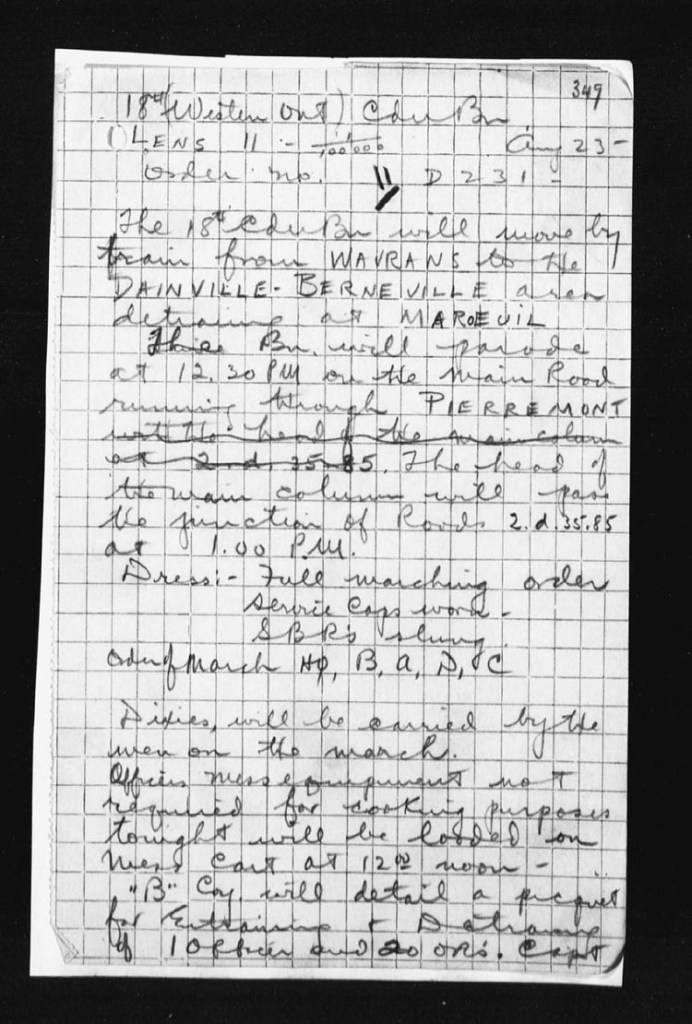 349
18th (Western Ont) Cdn Bn
() LENS 11 :- 1/100,000 Aug 23-
Order no. D 231 -
The 18th Cdn Bn will move by
train from WAVRANS to the
DAINVILLE-BERNEVILLE area
detraining at MAROEUIL
The Bn. will parade
at 12.30 PM on the Main Road
running through PIERREMONT
with the head of the main column
at 2.d.35.85. The head of
the main column will pass
the junction of Roads 2.d.35.85
at 1.00 P.M.
Dress:- Full marching order
Service Caps worn -
SBR's slung.
Order of March HQ, B, A, D, C
Dixies, will be carried by the
men on the march.
Officers mess equipment not
required for cooking purposes
tonight will be loaded on
Mess Cart at 12 00 noon -
"B" Coy. will detail a picquet
for Entraining + Detraining
of 1 Officer and 20 ORs. Capt